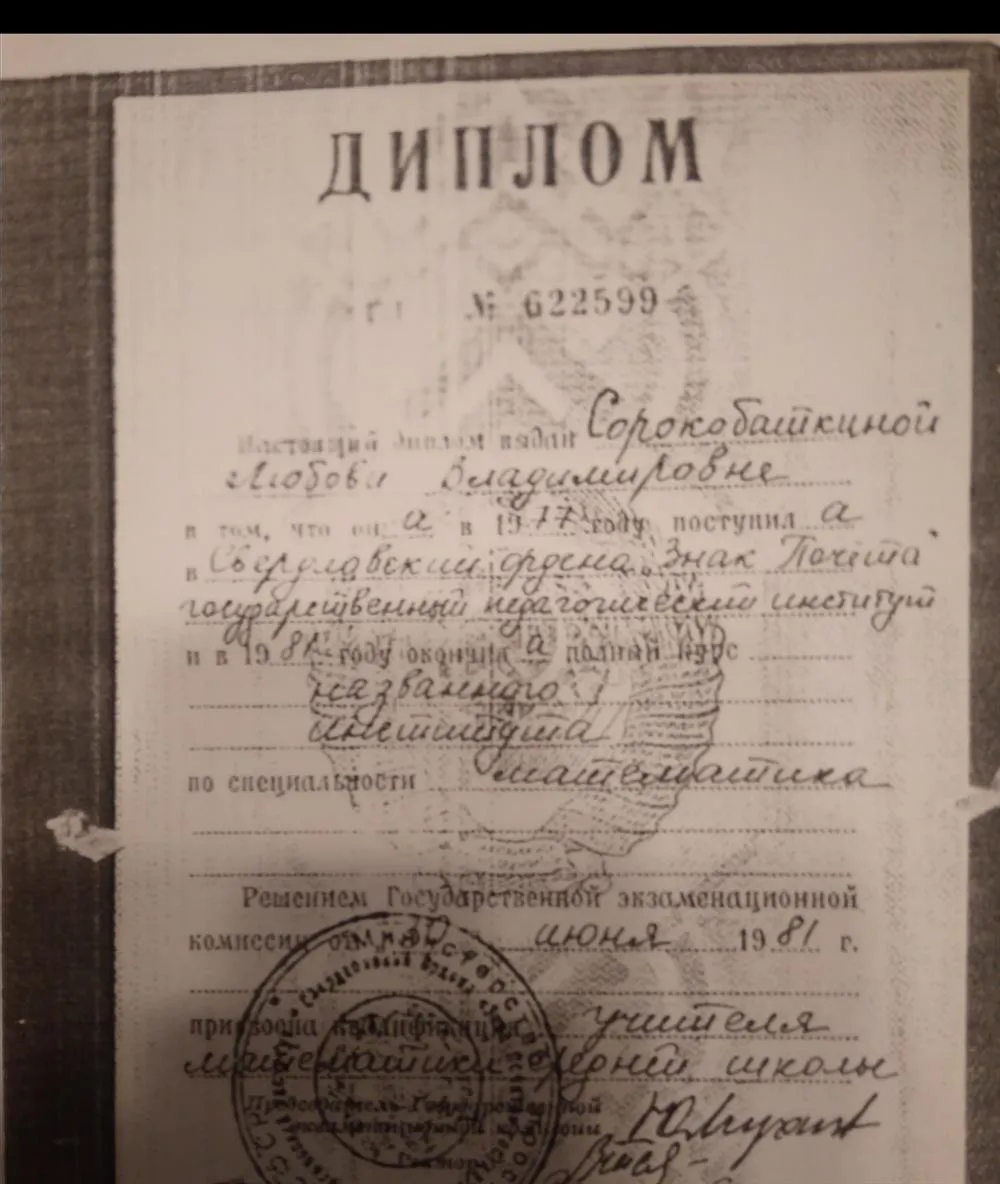 ДИПЛОМ
№ 622599
Настоящий диплом выдан Сорокобаткиной
Любови Владимировне
в том, что он а в 1977 году поступил а
в Свердловский ордена „Знак Почёта"
государственный педагогический институт
и в 1981 году окончил а полный курс
названного
института
по специальности математика
Решением Государственной экзаменационной
комиссии от 30 июня 1981 г.
присвоена квалификация учителя
математики средней школы
Председатель Государственной
экзаменационной комиссии
Ректор